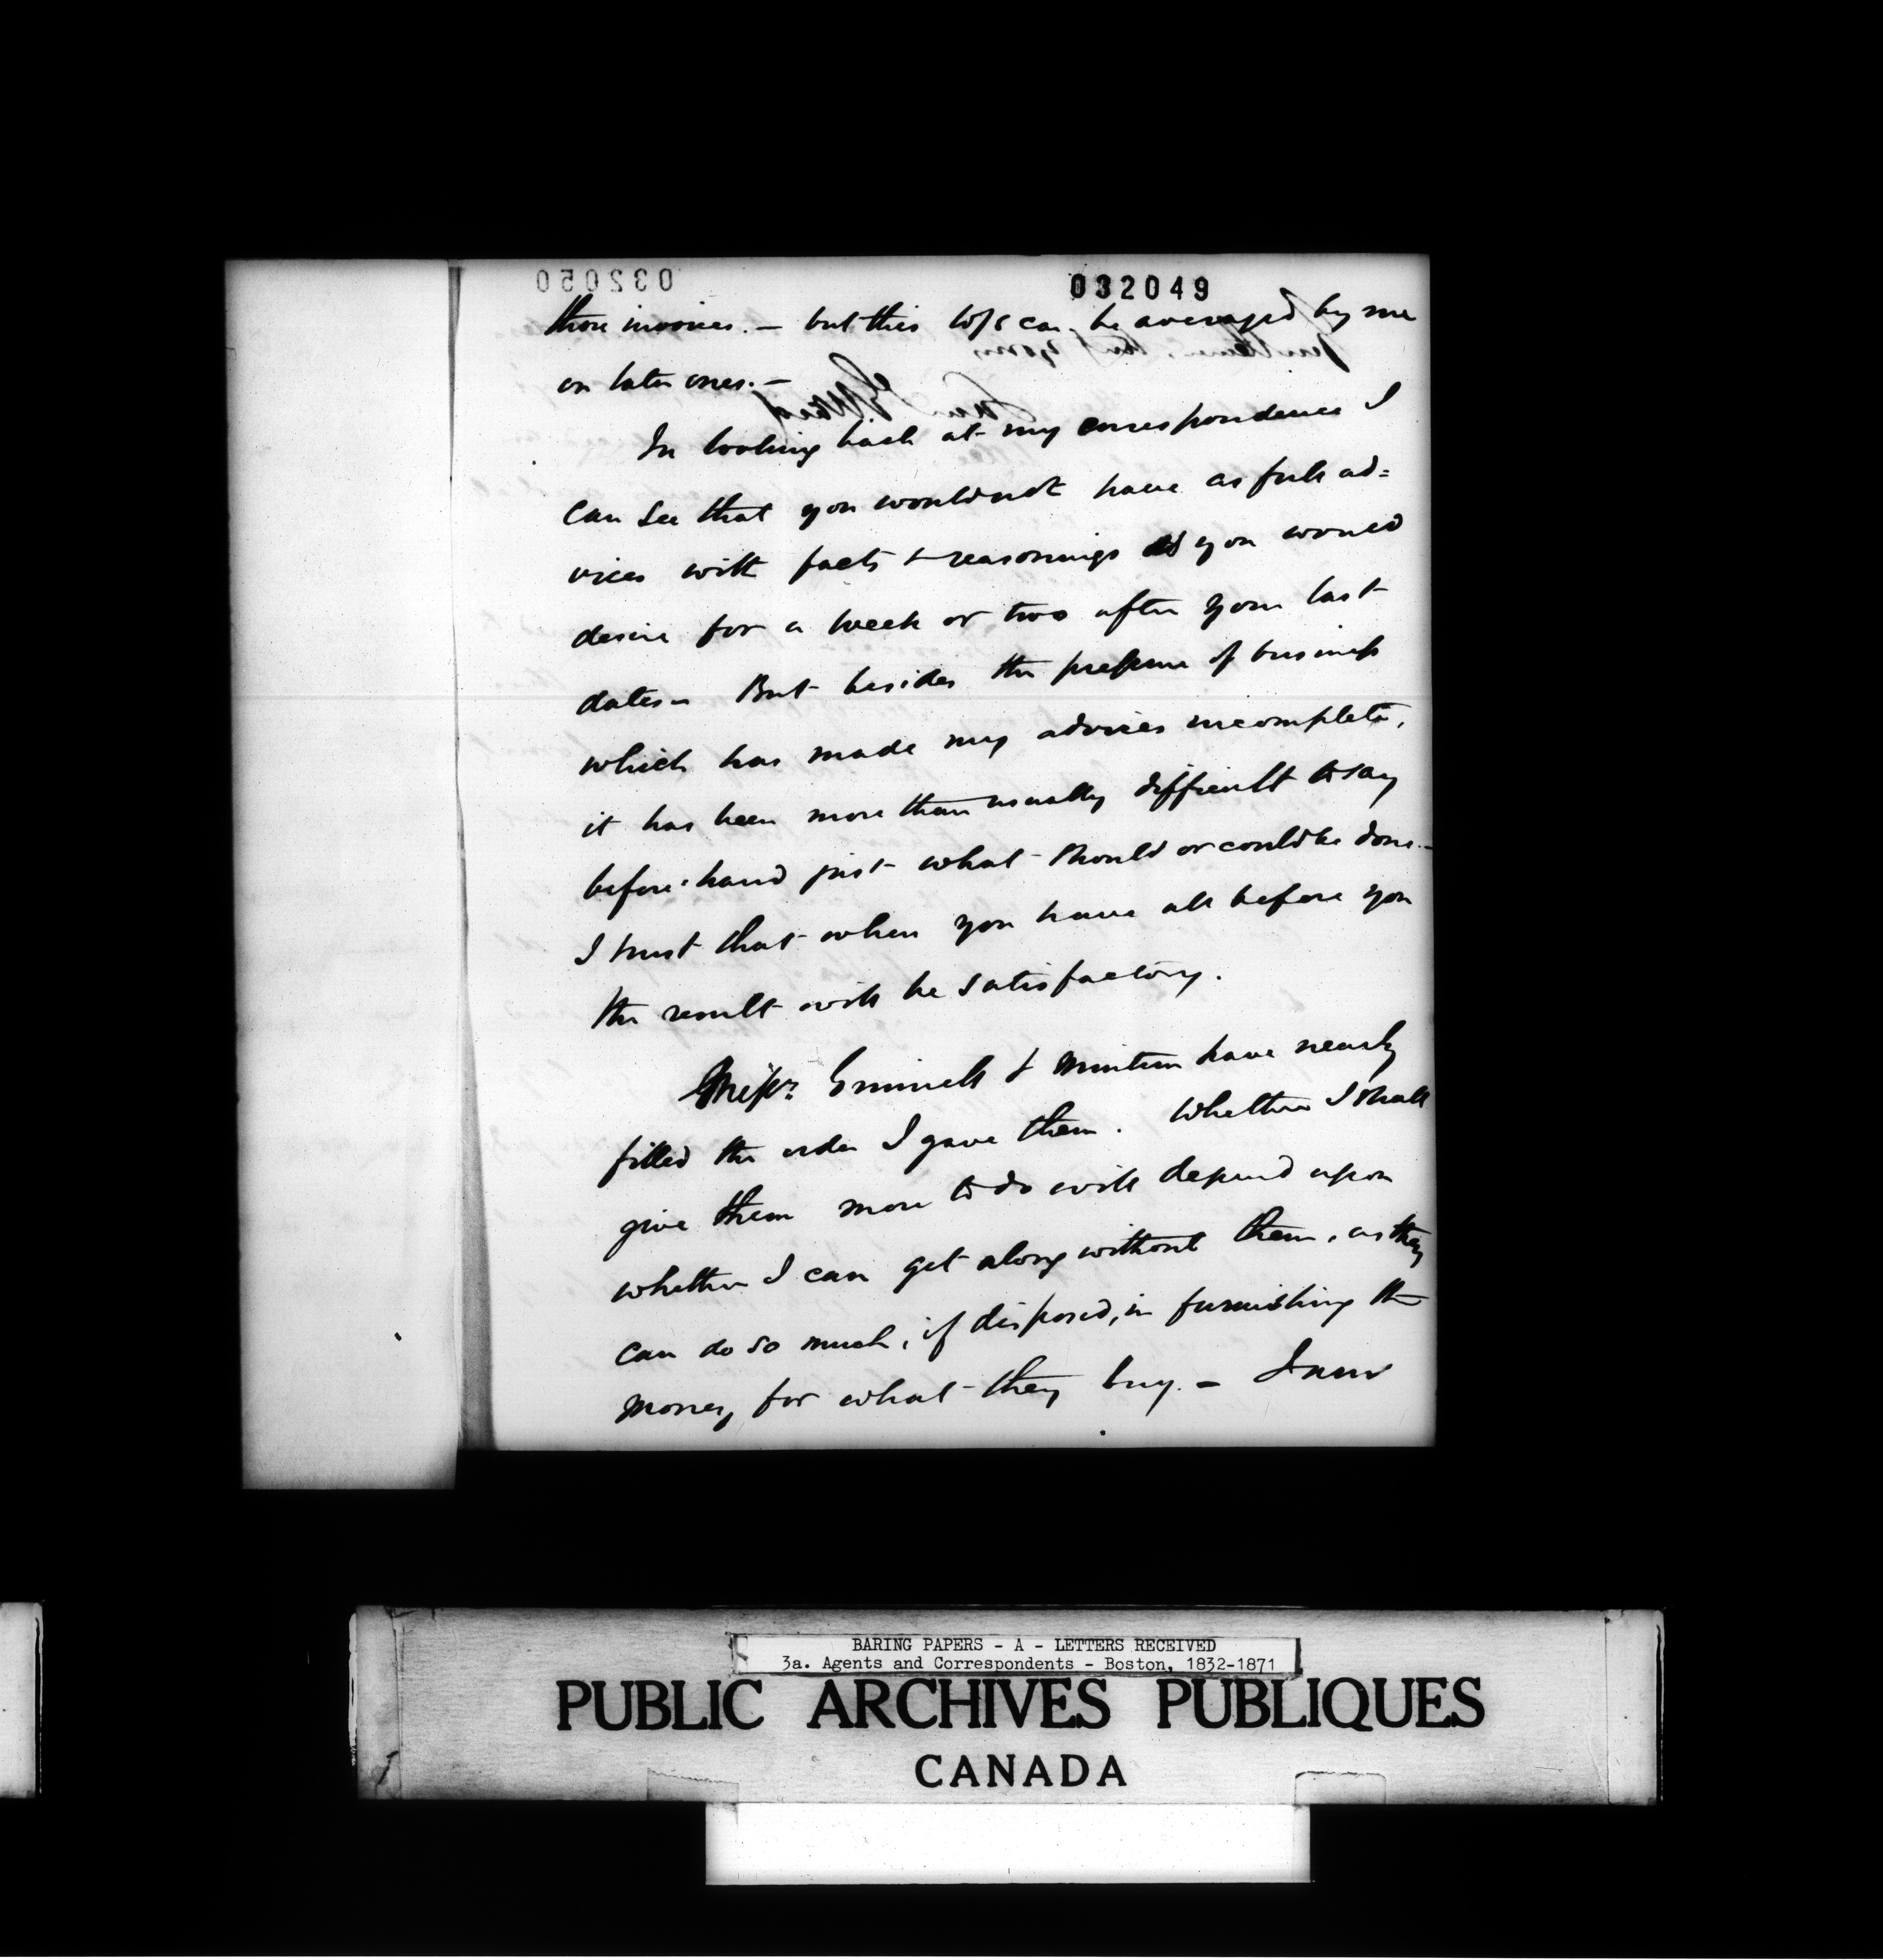 032049
those invoices. — but this loss can be averaged by me
on later ones. —
In looking back at my correspondence I
can see that you would not have as full ad=
vices with facts & reasonings as you would
desire for a week or two after your last
dates — But besides the pressure of business
which has made my advices incomplete,
it has been more than usually difficult to say
before-hand just what should or could be done. —
I trust that when you have all before you
the result will be satisfactory.
Messrs. Grinnell & Minturn have nearly
filled the order I gave them. Whether I shall
give them more to do will depend upon
whether I can get along without them, as they
can do so much, if disposed, in furnishing the
money for what they buy. —
BARING PAPERS - A - LETTERS RECEIVED
3a. Agents and Correspondents - Boston, 1832-1871
PUBLIC ARCHIVES PUBLIQUES
CANADA